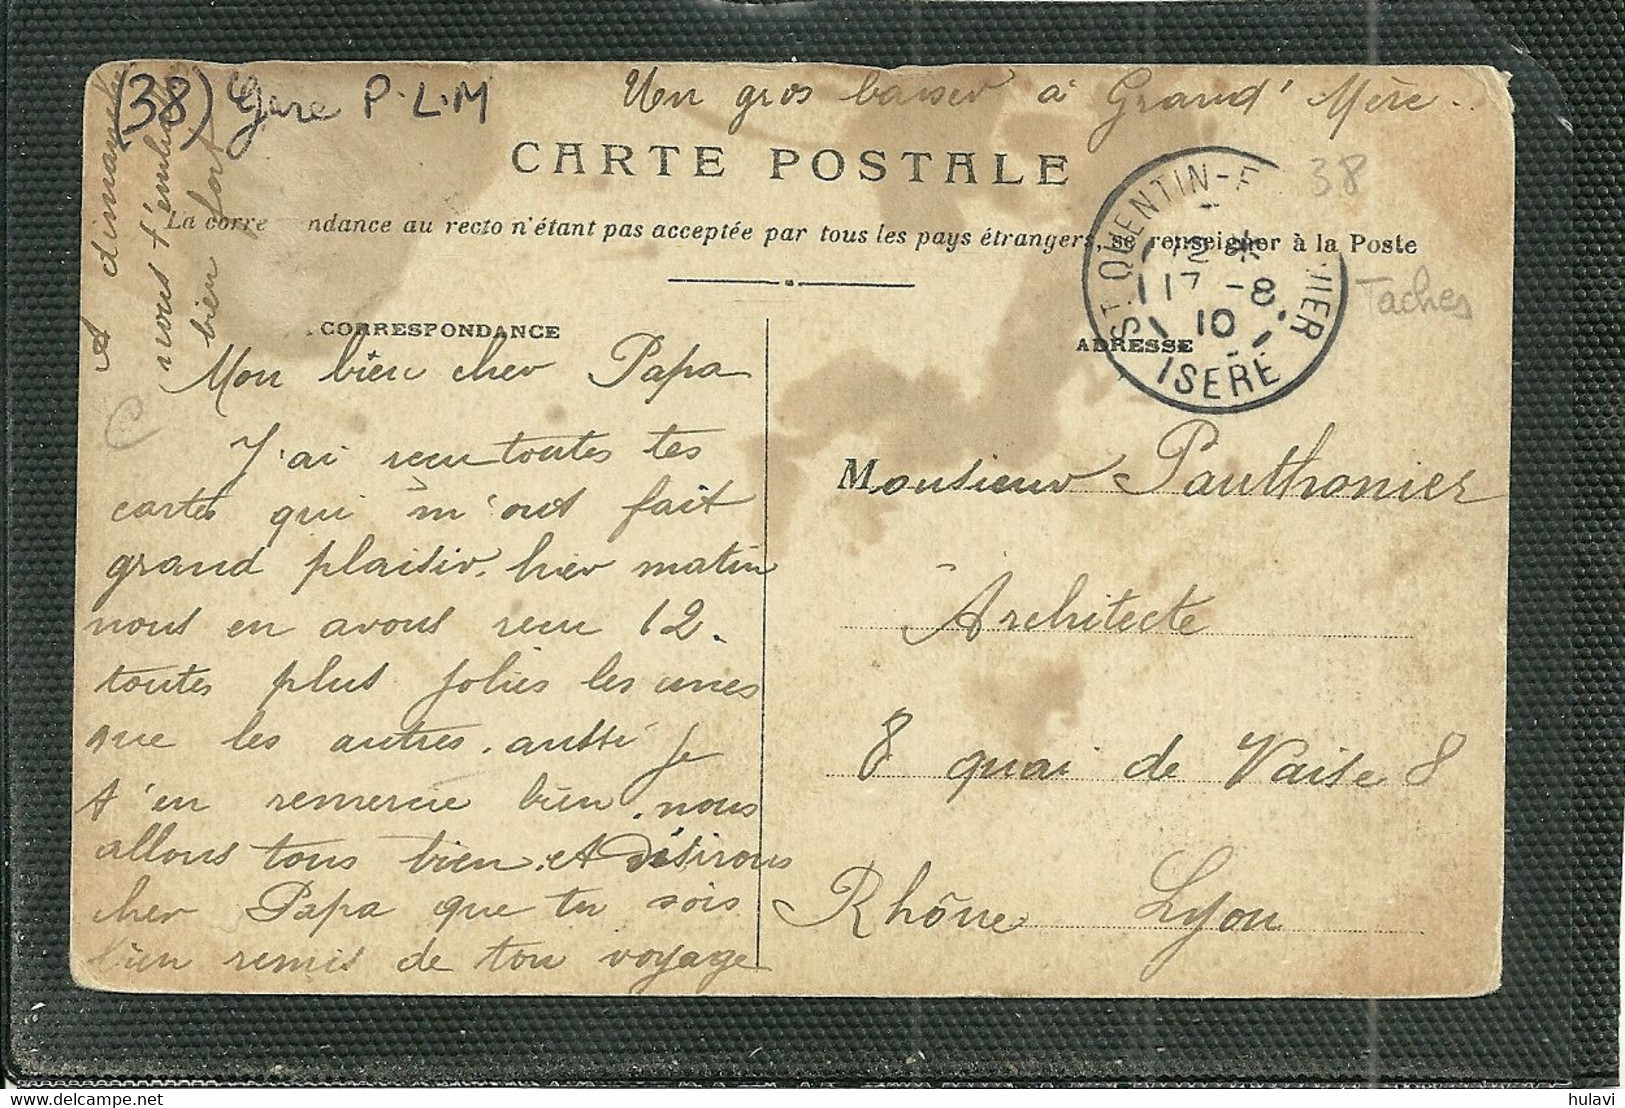 (38) Gare P.L.M
Un gros baiser à Grand' Mère.
CARTE POSTALE
38
La corre ndance au recto n'étant pas acceptée par tous les pays étrangers, se renseigner à la Poste
A dimanche
nous t'embr
bien fort
ST QUENTIN-F LLIER
12 *
17 - 8
10
ISERE
Taches
CORRESPONDANCE
ADRESSE
Mon bien cher Papa
J'ai recu toutes tes
cartes qui m'ont fait
grand plaisir. hier matin
nous en avons recu 12.
toutes plus jolies les unes
que les autres. aussi je
t'en remercie bien. nous
allons tous bien. et désirons
cher Papa que tu sois
bien remis de ton voyage
Monsieur Pauthonier
Architecte
8 quai de Vaise 8
Rhône Lyon
hulavi